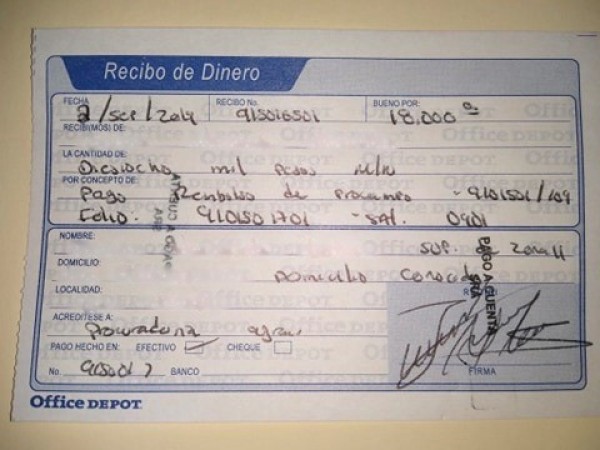 Recibo de Dinero
FECHA RECIBO No. BUENO POR:
2/sep/2019 915016501 18,000
RECIBI(MOS) DE:
LA CANTIDAD DE:
Dieciocho mil pesos m/n
POR CONCEPTO DE:
Pago de procampo - 9101501/109
Folio. 9101501701 - SAT. 0901
NOMBRE: SUP. Zona 11
DOMICILIO: Domicilio Conocido
LOCALIDAD:
PAGO A CUENTA
ACREDITESE A:
Procuraduria
PAGO HECHO EN: EFECTIVO CHEQUE
No. BANCO FIRMA
Office DEPOT